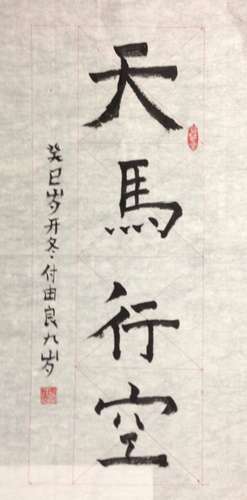 天馬行空
癸巳岁开冬·付由良九岁